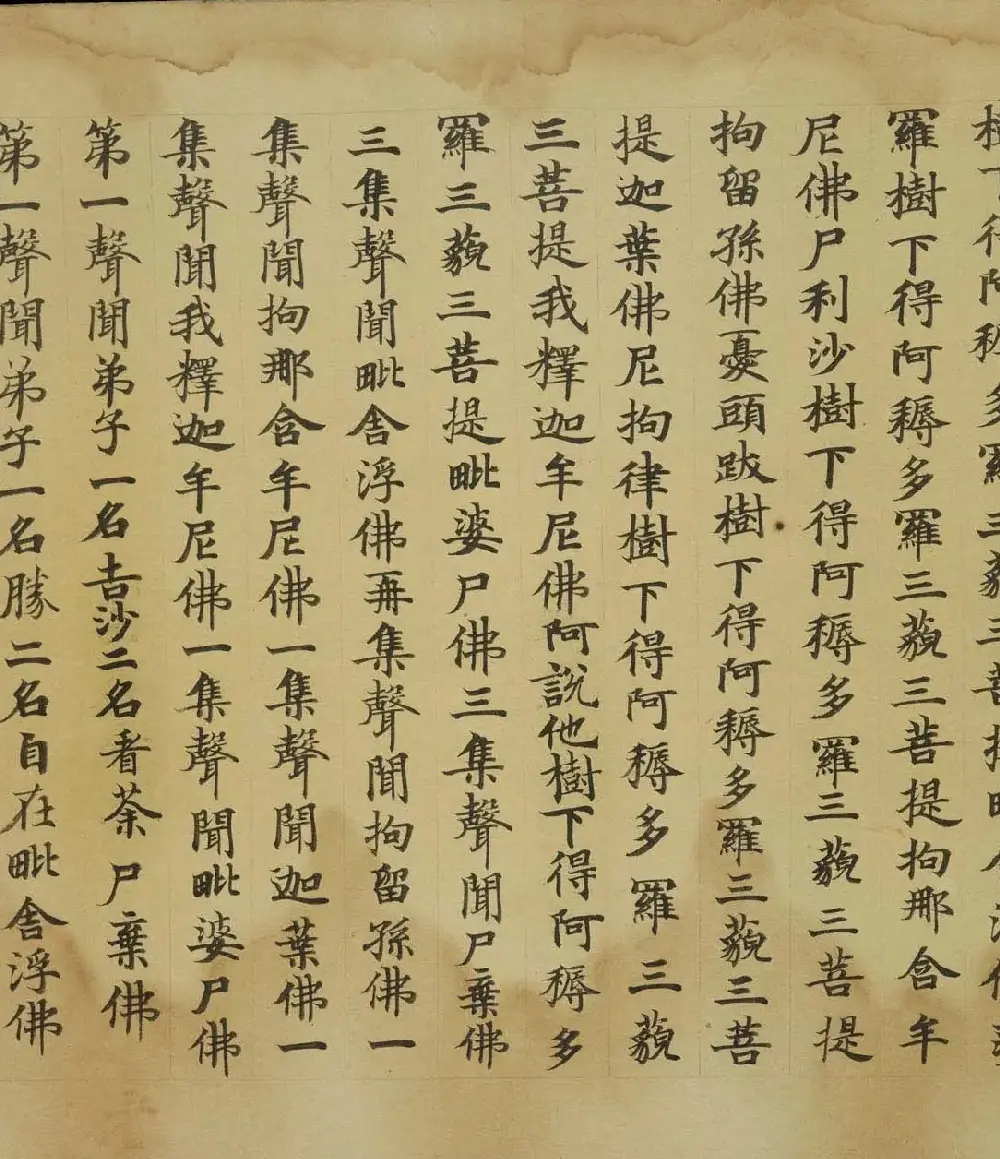 樹下得阿耨多羅三藐三菩提毗舍浮佛
羅樹下得阿耨多羅三藐三菩提拘那含牟
尼佛尸利沙樹下得阿耨多羅三藐三菩提
拘留孫佛憂頭跋樹下得阿耨多羅三藐三菩
提迦葉佛尼拘律樹下得阿耨多羅三藐
三菩提我釋迦牟尼佛阿說他樹下得阿耨多
羅三藐三菩提毗婆尸佛三集聲聞尸棄佛
三集聲聞毗舍浮佛再集聲聞拘留孫佛一
集聲聞拘那含牟尼佛一集聲聞迦葉佛一
集聲聞我釋迦牟尼佛一集聲聞毗婆尸佛
第一聲聞弟子一名吉沙二名看荼尸棄佛
第一聲聞弟子一名勝二名自在毗舍浮佛